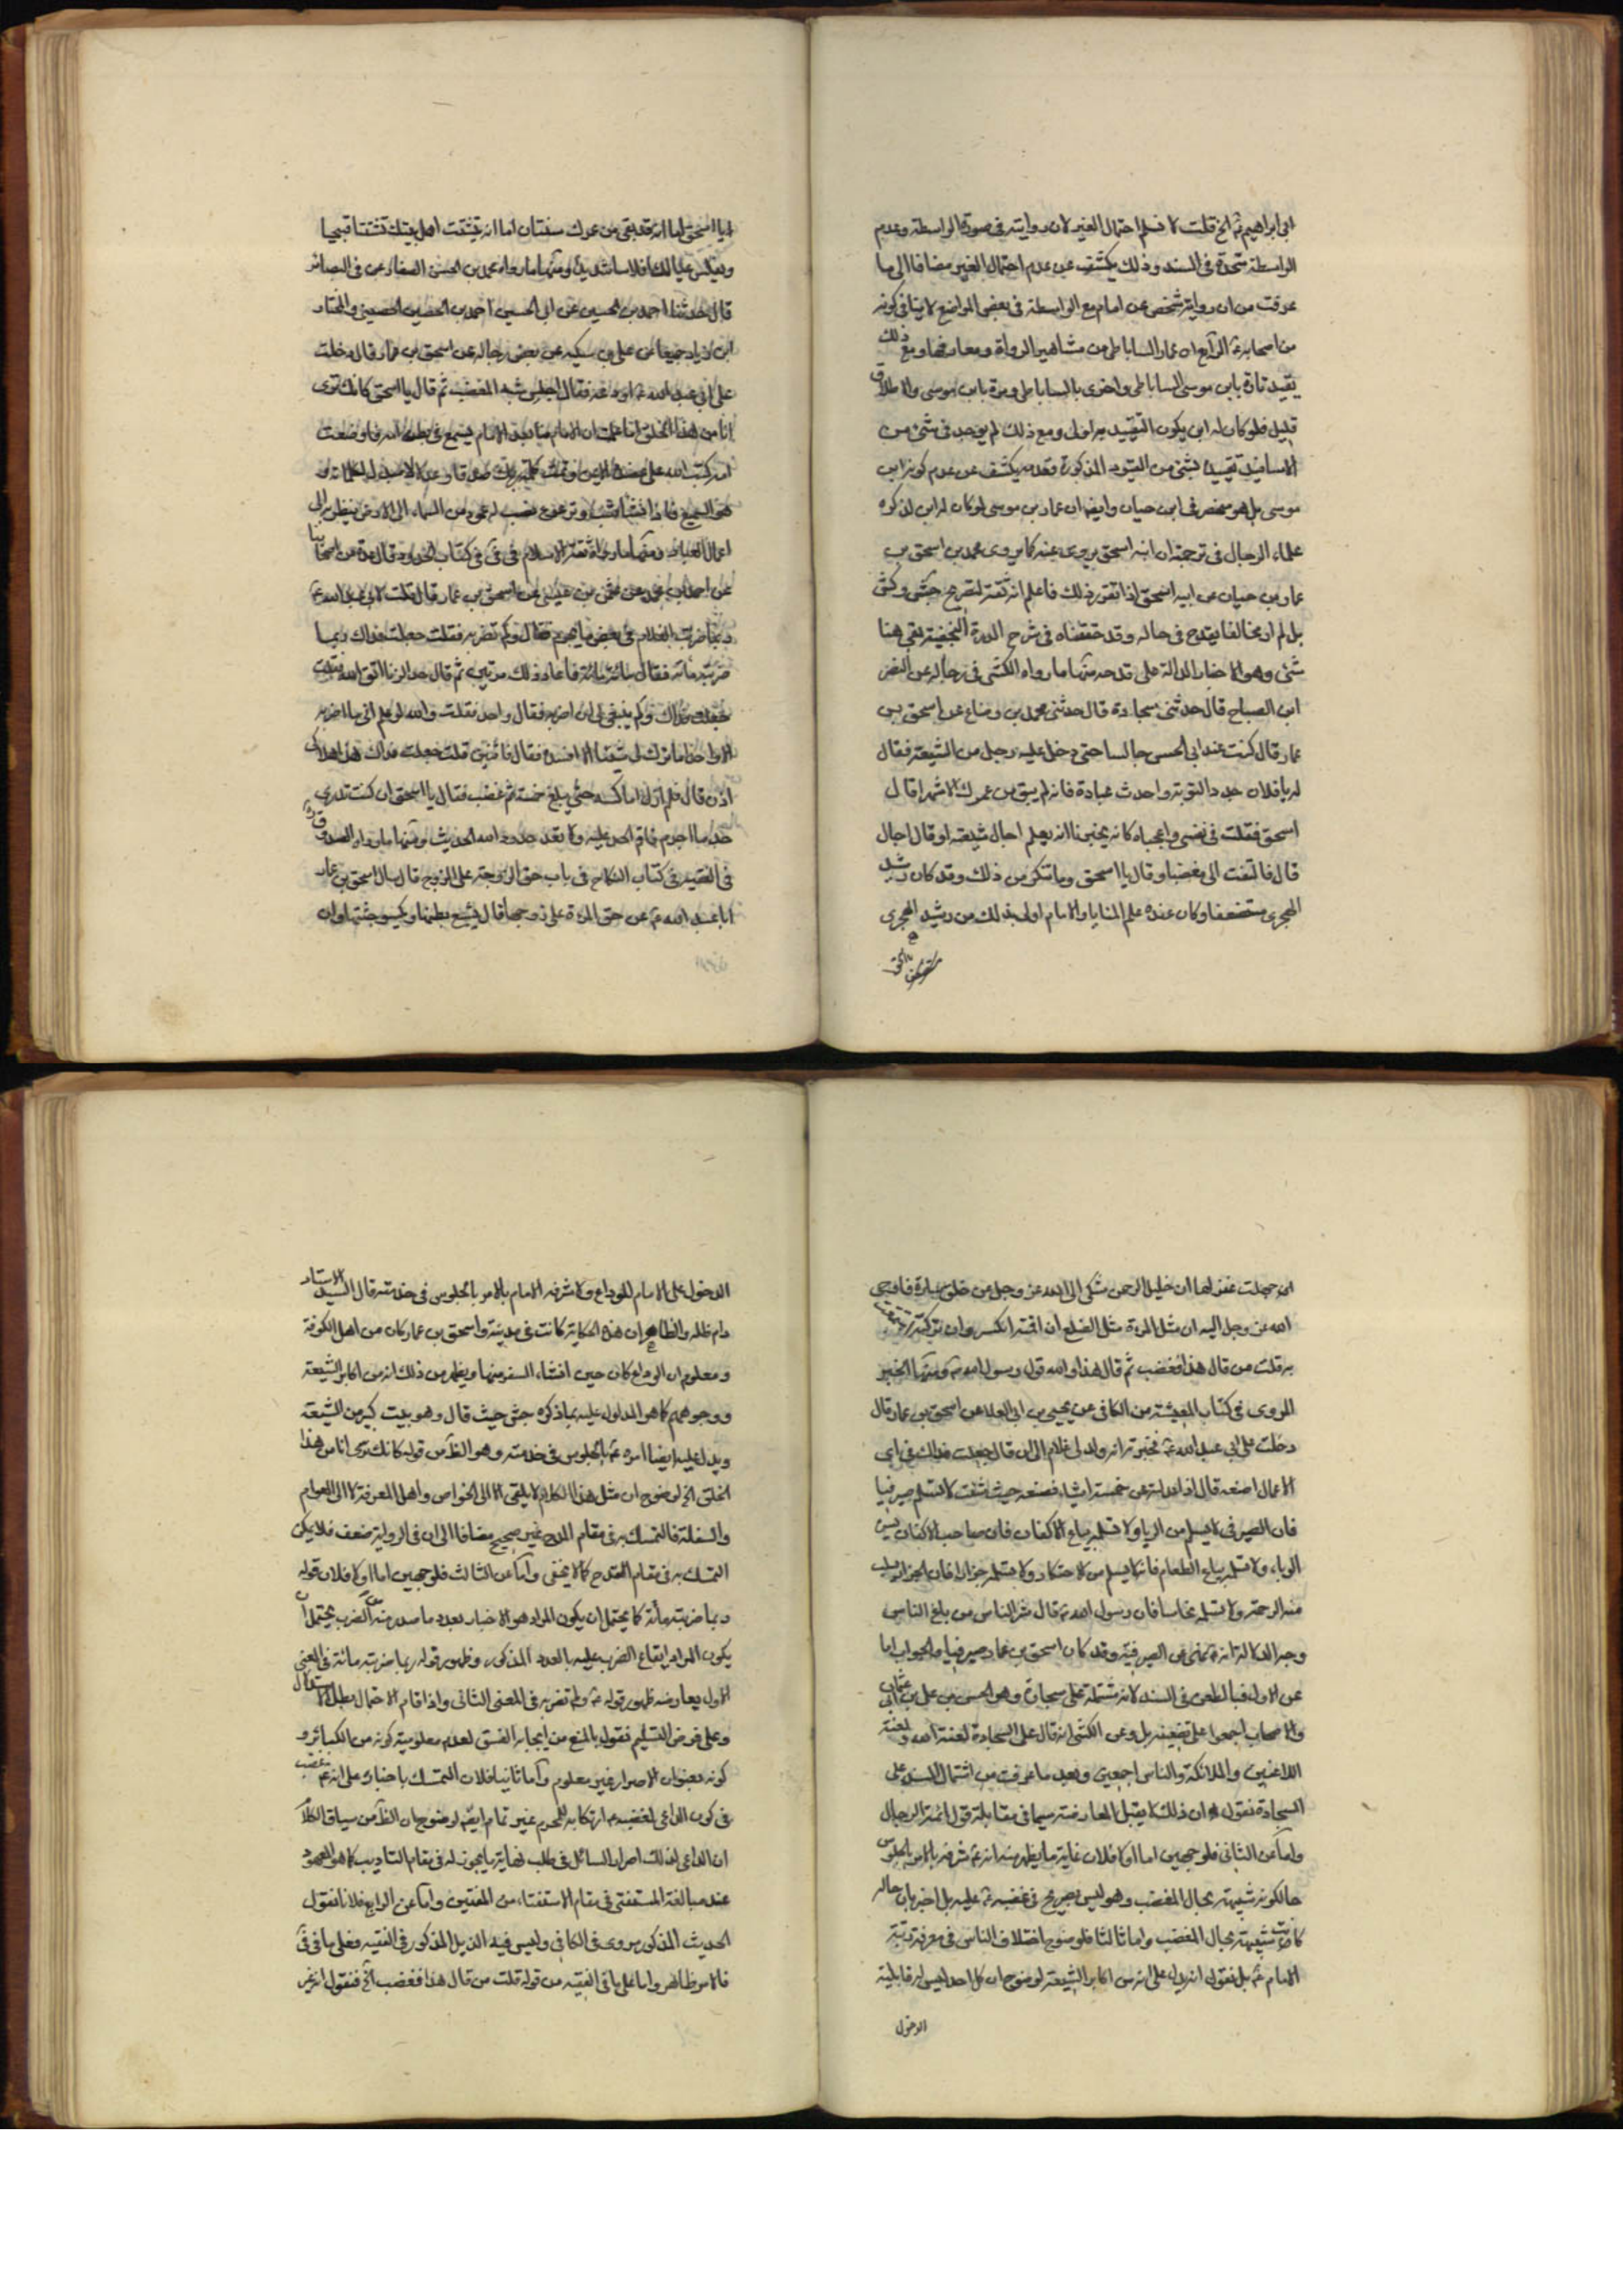 ابى ابراهيم ع الخ قلت لا نسلم احتمال الغير لان روايته فى صورة الواسطة وعدم
الواسطة متحدة فى السند وذلك يكشف عن عدم احتمال الغير مضافا الى ما
عرفت من ان رواية شخص عن امام مع الواسطة فى بعض المواضع لا ينافى كونه
من اصحابه ع الرابع ان عمار الساباطى من مشاهير الرواة ومعاريفها ومع ذلك
يقيد تارة بابن موسى الساباطى واخرى بالساباطى ومرة بابن موسى والاطلاق
قليل فلو كان له ابن يكون التقييد به اولى ومع ذلك لم يوجد فى شئ من
الاسانيد تقييد بشئ من القيود المذكورة فعدمه يكشف عن عدم كونه ابن
موسى بل هو منحصر فى ابن حيان وايضا ان عمار بن موسى لو كان له ابن لذكره
علماء الرجال فى ترجمته ان ابنه اسحق يروى عنه كما يروى محمد بن اسحق بن
عمار بن حيان عن ابيه اسحق اذا تقرر ذلك فاعلم انه ثقة لتصريح جش وكش
بل لم ار مخالفا يقدح فى حاله وقد حققناه فى شرح الدرة النجفية بقى هنا
شئ وهو الاخبار الدالة على قدحه منها ما رواه الكشى فى رجاله عن النضر
ابن الصباح قال حدثنى سجادة قال حدثنى محمد بن وضاح عن اسحق بن
عمار قال كنت عند ابى الحسن جالسا حتى دخل عليه رجل من الشيعة فقال
له يا فلان جدد التوبة واحدث عبادة فانه لم يبق من عمرك الا شهر قال
اسحق فقلت فى نفسى واعجباه كانه يخبرنا انه يعلم اجال شيعته او قال اجال
قال فالتفت الى مغضبا وقال يا اسحق وما تنكر من ذلك وقد كان رشيد
الهجرى مستضعفا وكان عنده علم المنايا والامام اولى بذلك من رشيد الهجرى
يا اسحق اما انه قد بقى من عمرك سنتان اما انه يتشتت اهل بيتك تشتتا قبيحا
ويفلس عيالك افلاسا شديدا ومنها ما رواه محمد بن الحسن الصفار عن فى البصائر
قال حدثنا احمد بن الحسين عن ابى الحسين احمد بن الحصين الحصينى والمختار
ابن زياد جميعا عن على بن سكينه عن بعض رجاله عن اسحق بن عمار قال دخلت
على ابى عبد الله ع اودعه فقال اجلس شبه المغضب ثم قال يا اسحق كانك ترى
انا من هذا الخلق اما علمت ان الامام منا بعد الامام يسمع فى بطن امه فاذا وضعت
امه كتب الله على عضده الايمن وتمت كلمة ربك صدقا وعدلا لا مبدل لكلماته و
هو السميع فاذا
اعمال العباد ومنها ما رواه ثقة الاسلام فى فى كتاب الحدود قال عدة من اصحابنا
عن احمد بن محمد عن عثمن بن عيسى عن اسحق بن عمار قال قلت لابى عبد الله ع
ربما ضربت الغلام فى بعض ما يجرم فقال وكم تضربه فقلت جعلت فداك ربما
ضربته مائة فقال مائة مائة فاعاد ذلك مرتين ثم قال حد الزنا اتق الله فقلت
جعلت فداك وكم ينبغى لى ان اضربه فقال واحدا فقلت والله لو علم انى ما اضربه
الا واحدا ما ترك لى شيئا الا افسده فقال فاثنين قلت جعلت فداك هذا هلاكى
اذن قال فلم ازل اماكسه حتى بلغ خمسة ثم غضب فقال يا اسحق ان كنت تدرى
حد ما اجرم فاقم الحد عليه ولا تعد حدود الله الحديث ومنها ما رواه الصدوق
فى الفقيه فى كتاب النكاح فى باب حق الزوجة على الزوج قال سال اسحق بن عمار
ابا عبد الله ع عن حق المرءة على زوجها قال يشبع بطنها ويكسو جثتها وان
ان جهلت غفر لها ان خليل الرحمن شكى الى الله عز وجل من خلق سارة فاوحى
الله عز وجل اليه ان مثل المرءة مثل الضلع ان اقمته انكسر وان تركته استمتعت
به قلت من قال هذا فغضب ثم قال هذا والله قول رسول الله ص ومنها الخبر
المروى فى كتاب المعيشة من الكافى عن يحيى بن ابى العلا عن اسحق بن عمار قال
دخلت على ابى عبد الله ع فخبرته انه ولد لى غلام الى ان قال جعلت فداك فى اى
الاعمال اضعه قال اذا عدلته عن خمسة اشياء فضعه حيث شئت لا تسلمه صيرفيا
فان الصيرفى لا يسلم من الربا ولا تسلمه بياع الاكفان فان صاحب الاكفان يسره
الوباء ولا تسلمه بياع الطعام فانه لا يسلم من الاحتكار ولا تسلمه جزارا فان الجزار يسلب
منه الرحمة ولا تسلمه نخاسا فان رسول الله ص قال شر الناس من باع الناس
وجه الدلالة انه ع نهى عن الصيرفية وقد كان اسحق بن عمار صيرفيا والجواب اما
عن الاول فبالطعن فى السند لانه مشتملة على سجادة وهو الحسن بن على بن ابى عثمان
والاصحاب اجمعوا على تضعيفه بل وعن الكشى انه قال على السجادة لعنة الله ولعنة
اللاعنين والملائكة والناس اجمعين وبعد ما عرفت من اشتمال السند على
السجادة نقول ان ذلك لا يقبل المعارضة سيما فى مقابلة قول ائمة الرجال
واما عن الثانى فلوجهين اما اولا فلان غاية ما يظهر منه انه ع شرفه بالامر بالجلوس
حالكونه شبيهة بحال المغضب وهو ليس بصريح فى غضبه ع عليه بل اخبر بان حاله
كانت شبيهة بحال المغضب واما ثالثا فلوضوح اختلاف الناس فى معرفة رتبة
الامام ع بل نقول انه يدل على انه من اكابر الشيعة لوضوح ان كل احد ليس له قابلية
الدخول
الدخول على الامام للوداع ولا شرفه الامام بالامر بالجلوس فى خدمته قال السيد الاستاد
دام ظله والظاهر ان هذه الحكاية كانت فى مدينة واسحق بن عمار كان من اهل الكوفة
ومعلوم ان الوداع كان حين انشاء السفر منها ويظهر من ذلك انه من اكابر الشيعة
ووجوههم كما هو المدلول عليه بما ذكره جش حيث قال وهو بيت كبير من الشيعة
ويدل عليه ايضا امره ع بالجلوس فى خدمته وهو الظ من قوله كانك ترى انا من هذا
الخلق الخ لوضوح ان مثل هذا الكلام لا يلقى الا الى الخواص واهل المعرفة لا الى العوام
والسفلة فالتمسك به فى مقام القدح غير صحيح مضافا الى ان فى الرواية ضعف فلا يمكن
التمسك به فى مقام القدح كما لا يخفى واما عن الثالث فلوجهين اما اولا فلان قوله
ربما ضربته مائة كما يحتمل ان يكون المراد هو الاخبار بعدد ما صدر منه من الضرب يحتمل ان
يكون المراد ايقاع الضرب عليه بالعدد المذكور وظهور قوله ربما ضربته مائة فى المعنى
الاول يعارضه ظهور قوله ع وكم تضربه فى المعنى الثانى واذا قام الاحتمال بطل الاستدلال
وعلى فرض التسليم فنقول بالمنع من ايجابه الفسق لعدم معلومية كونه من الكبائر و
كونه بعنوان الاصرار غير معلوم واما ثانيا فلان التمسك باخباره على انه ع غضب
فى كون الداعى لغضبه ع ارتكابه للمحرم غير تمام ايضا لوضوح ان الظ من سياق الكلام
ان الداعى لذلك اصرار السائل فى طلب نهاية ما يجوز له فى مقام التاديب كما هو المعهود
عند مبالغة المستفتى فى مقام الاستفتاء من المفتين واما عن الرابع فلانا نقول
الحديث المذكور مروى فى الكافى وليس فيه الذيل المذكور فى الفقيه فعلى ما فى فى
فالامر ظاهر واما على ما فى الفقيه من قوله قلت من قال هذا فغضب الخ فنقول انه غير